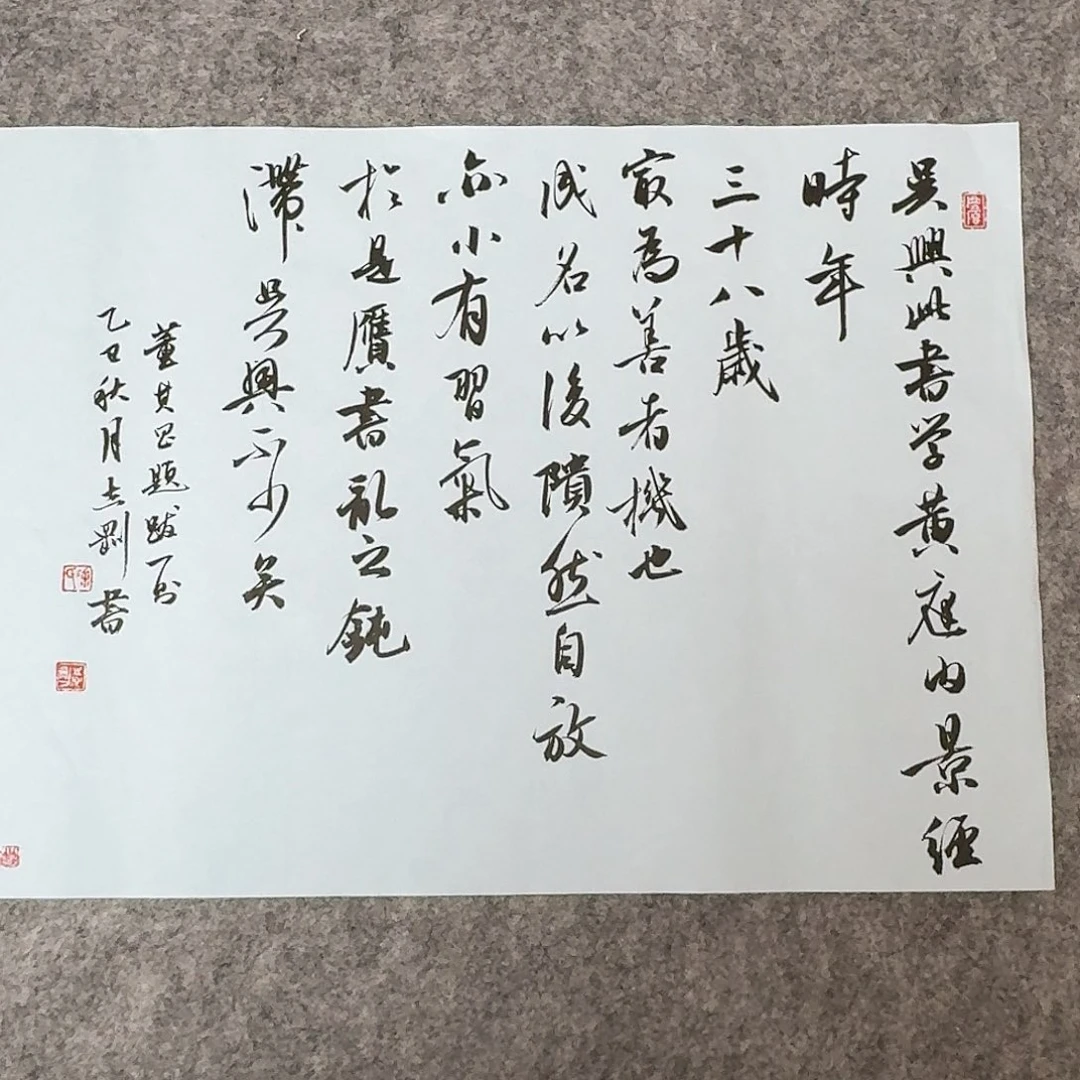 吴興此書学黄庭内景經
時年
三十八歲
最為善者機也
成名以後隤然自放
亦小有習氣
於是贗書亂之鈍
滯吴興不少矣
董其昌題跋一則
乙巳秋月志剛書